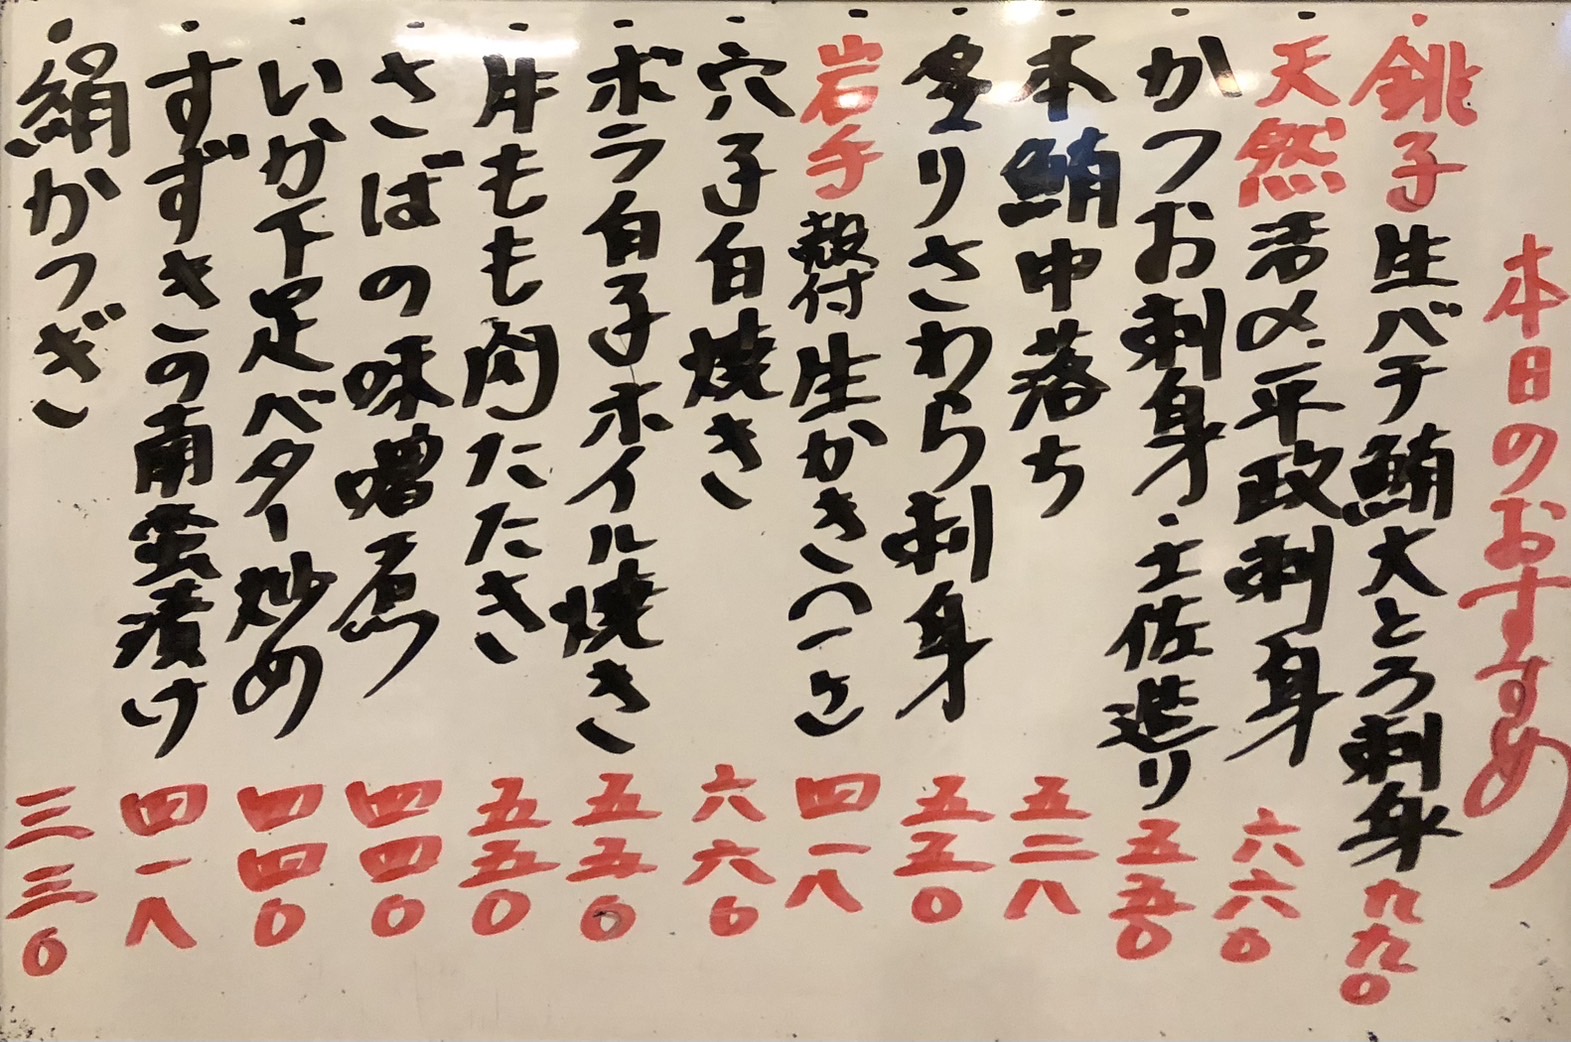 本日のおすすめ
・銚子生バチ鮪大とろ刺身 九九〇
・天然活〆平政刺身 六六〇
・かつお刺身・土佐造り 五五〇
・本鮪中落ち 五二八
・炙りさわら刺身 五五〇
・岩手殻付生かき(一ヶ) 四一八
・穴子白焼き 六六〇
・ボラ白子ホイル焼き 五五〇
・牛もも肉たたき 五五〇
・さばの味噌煮 四四〇
・いか下足バター炒め 四四〇
・すずきの南蛮漬け 四一八
・絹かつぎ 三三〇